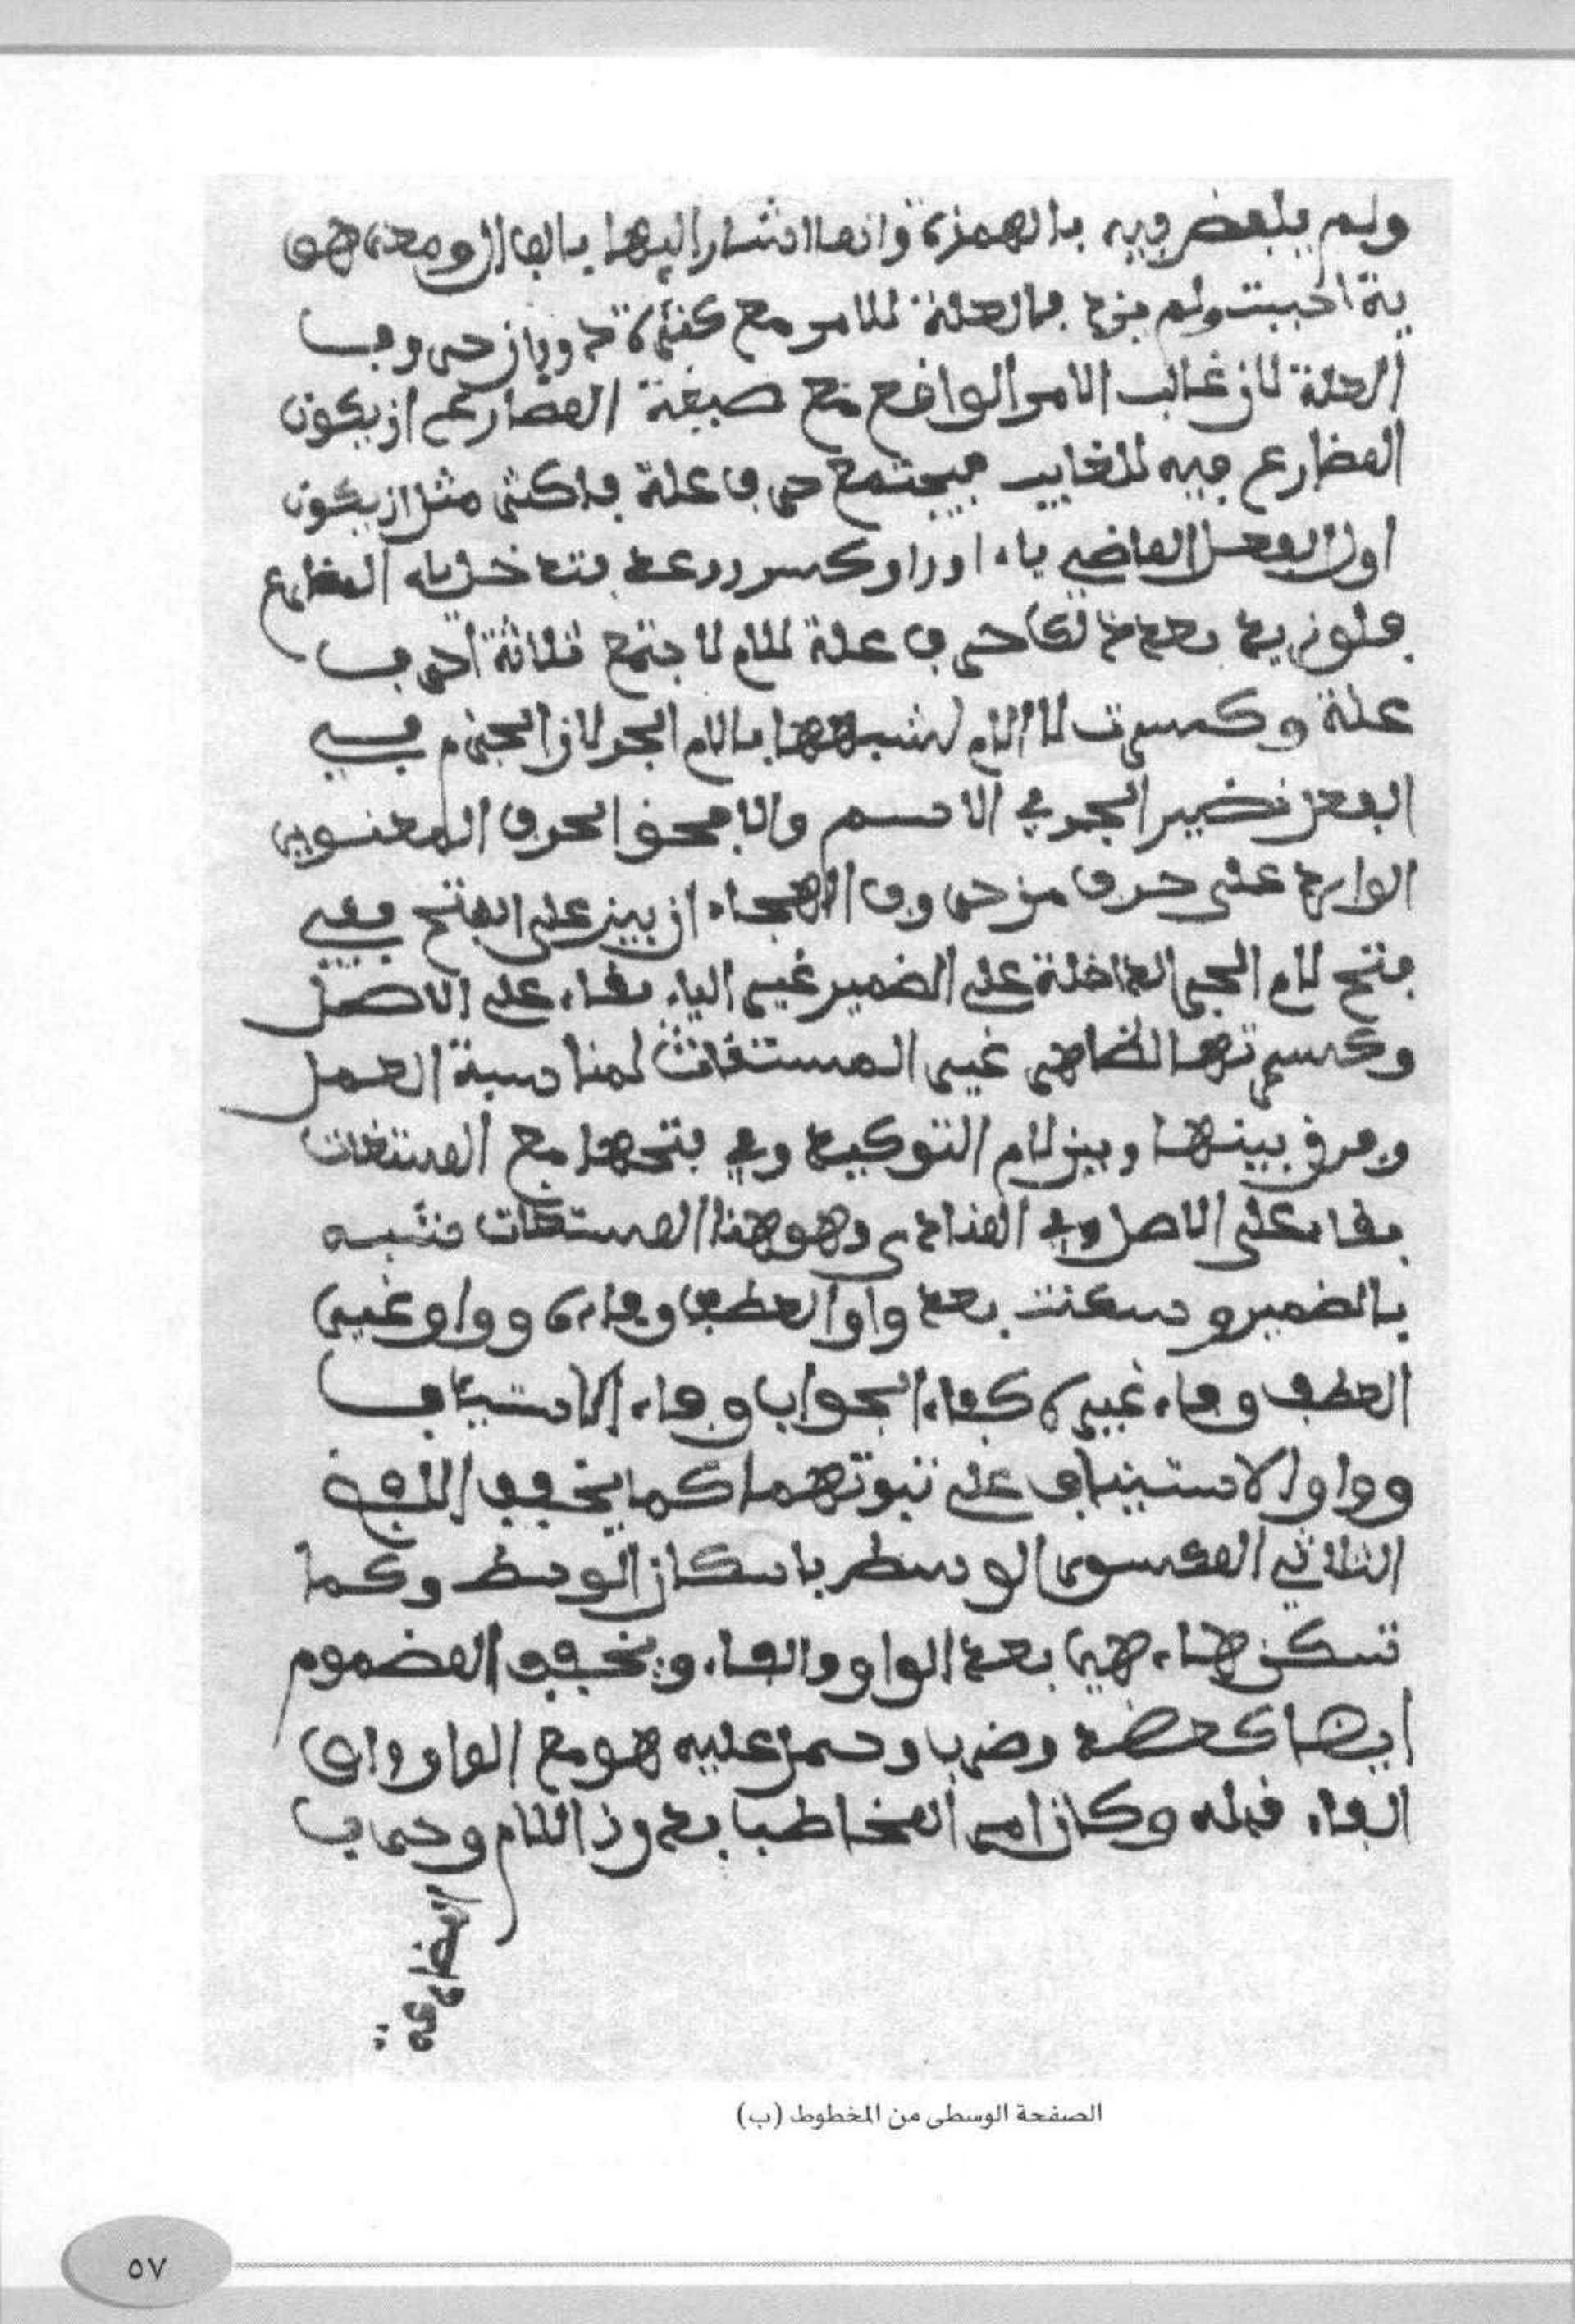 ولم يلفظ فيه بالهمزة وانما اشار اليها بالفا ال ومعنا
ية احببت ولم بالعلة للامر مع كثرة
العلة لان غالب الامر الواقع مع صيغة المضارع ان يكون
المضارع فيه للغايب فيجتمع حرفا علة فاكثر مثل ان يكون
اول الفعل الماضي ياء او واو فتدخل ياء المضارع
فلو زيد بعد ذلك حرف علة للام لاجتمع ثلاثة احرف
علة وكسرت لا اللام لشبهها بلام الجر لان الجزم في
الفعل نظير الجر في الاسم والا فحق الحرف المعنوي
الوارد على حرف من حروف الهجاء ان يبنى على الفتح ففي
فتح لام الجر الداخلة على الضمير غير الياء بقاء على الاصل
وكسرتها الظاهر غير المستغاث لمناسبة العمل
وفرق بينها وبين لام التوكيد وفي فتحها مع المستغاث
بقاء على الاصل وفي المنادى وهو هنا المستغاث فشبه
بالضمير وسكنت بعد واو العطف وفاءه وواو غير
العطف وفاء غيره كفاء الجواب وفاء الاستيناف
وواو الاستيناف على ثبوتهما كما يخفف اللفظ
الثلاثي المكسور الوسط باسكان الوسط وكما
تسكن هاء هي بعد الواو والفاء ويخفف المضموم
ايضا كعضد وحمل عليه هو مع الواو او
الفاء قبله وكان امر المخاطب بدون اللام وحرف
المضارعة
الصفحة الوسطى من المخطوط (ب)
٥٧